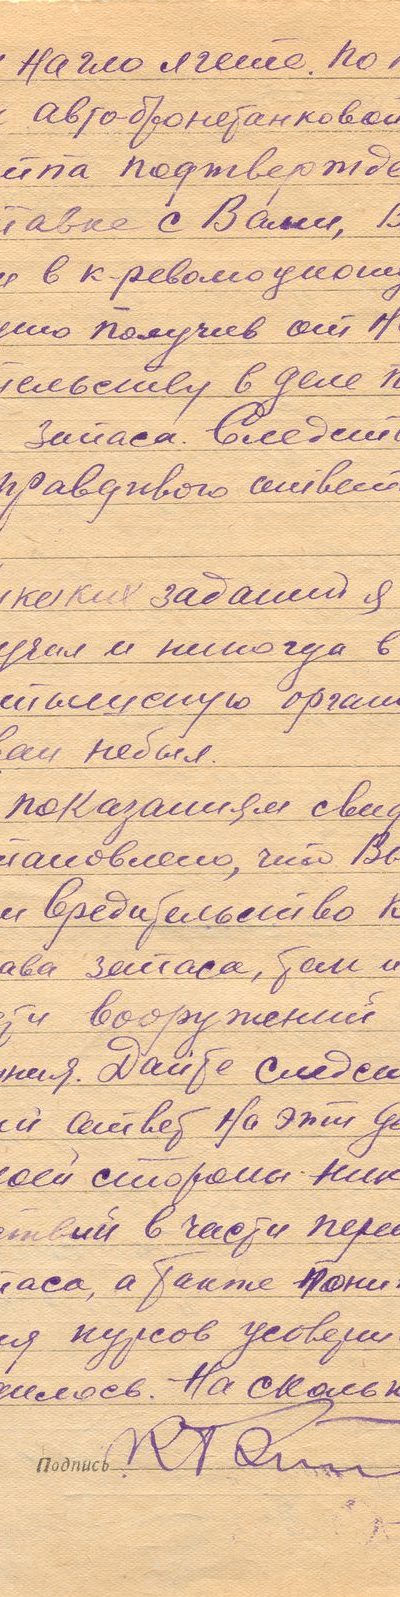 Нагло лжете. По
автобронетанковой
подтвержде
тавке с Вами, В
в к-революцион
получив от
тельству в деле
запаса. Следст
правдивого ответ
никаких заданий я
учал и никогда в
органи
ван небыл.
показаниям свид
тановлено, что Вы
и вредительство к
ава запаса, так и
сти вооружений
ния. Дайте следст
ий ответ на эти
моей стороны ник
ствий в части пере
паса, а также пони
ия курсов усоверш
дилось. На скольк
Подпись